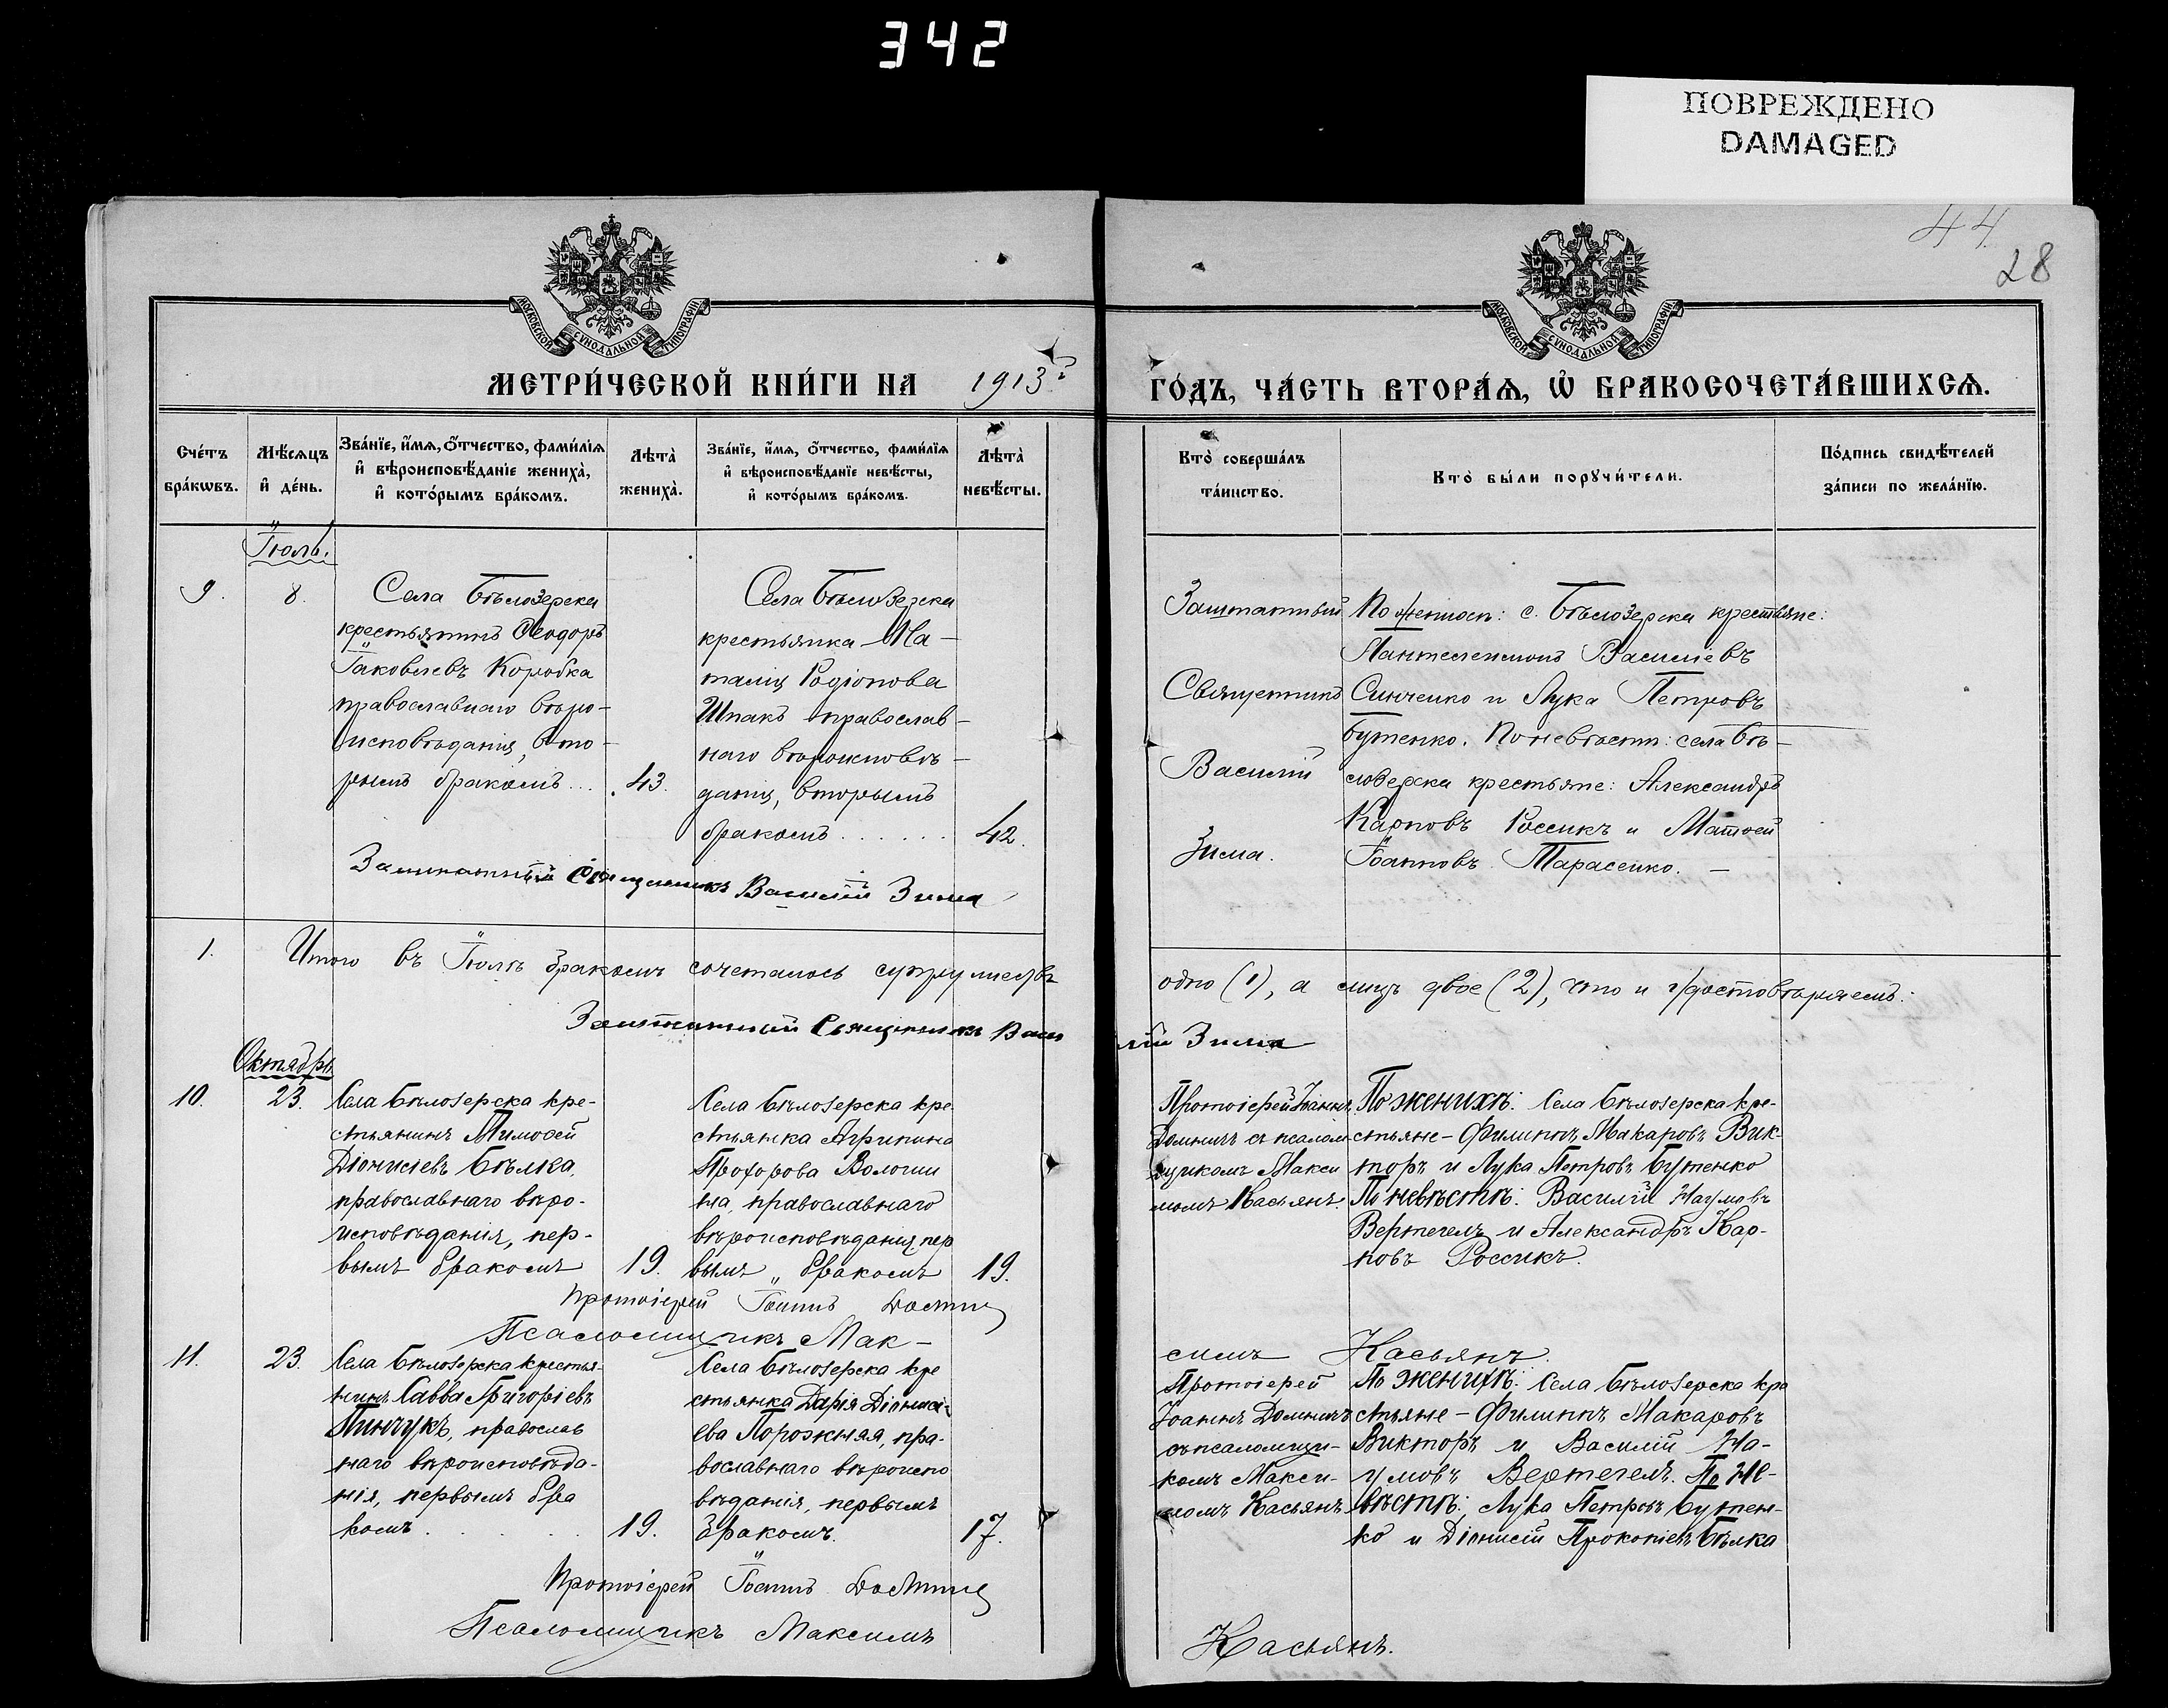 342
ПОВРЕЖДЕНО
DAMAGED
44
28
МОСКОВСКОЙ СУНОДАЛЬНОЙ ТИПОГРАФІИ
МОСКОВСКОЙ СУНОДАЛЬНОЙ ТИПОГРАФІИ
МЕТРИ́ЧЕСКОЙ КНИ́ГИ НА 1913 г
ГО́ДЪ, ЧА́СТЬ ВТОРА́Ѧ, Ѡ҆ БРАКОСОЧЕТА́ВШИХСѦ.
Сче́тъ
бра́кѡвъ.
Мѣ́сѧцъ
и҆ де́нь.
Зва́нїе, и҆́мѧ, о҆́тчество, фами́лїѧ
и҆ вѣроисповѣ́данїе жениха̀,
и҆ кото́рымъ бра́комъ.
Лѣта̀
жениха̀.
Зва́нїе, и҆́мѧ, о҆́тчество, фами́лїѧ
и҆ вѣроисповѣ́данїе невѣ́сты,
и҆ кото́рымъ бра́комъ.
Лѣта̀
невѣ́сты.
Кто̀ соверша́лъ
та́инство.
Кто̀ бы́ли порꙋчи́тели.
По́дпись свидѣ́телей
за́писи по жела́нїю.
Іюль.
9.
8.
Села Бѣлозерска
крестьянинъ Ѳеодоръ
Іаковлевъ Коробка
православнаго вѣро-
исповѣданія, вто-
рымъ бракомъ...
43.
Села Бѣлозерска
крестьянка На-
талія Родіонова
Шпакъ православ-
наго вѣроисповѣ-
данія, вторымъ
бракомъ......
42.
Заштатный Священникъ Василій Зима
Заштатный
Священникъ
Василій
Зима.
По женихѣ: с. Бѣлозерска крестьяне:
Пантелеимонъ Василіевъ
Синченко и Лука Петровъ
Бутенко. По невѣстѣ: села Бѣ-
лозерска крестьяне: Александръ
Карповъ Россикъ и Матѳей
Іоанновъ Тарасенко. —
1.
Итого въ Іюлѣ бракомъ сочеталось супружествъ
одно (1), а лицъ двое (2), что и удостовѣряемъ:
Заштатный Священникъ Васи
лій Зима
Октябрь
10.
23.
Села Бѣлозерска кре-
стьянинъ Тимоѳей
Діонисіевъ Бѣлка,
православнаго вѣро-
исповѣданія, пер-
вымъ бракомъ
19.
Села Бѣлозерска кре
стьянка Агрипина
Прохорова Волоши
на, православнаго
вѣроисповѣданія, пер
вымъ „ бракомъ
19.
Протоіерей Іоаннъ Домнич
Псаломщикъ Мак-
симъ Касьянъ.
Протоіерей Іоаннъ
Домничъ съ псалом
щикомъ Макси
момъ Касьянъ.
По женихѣ: Села Бѣлозерска кре-
стьяне - Филиппъ Макаровъ Вик-
торъ и Лука Петровъ Бутенко
По невѣстѣ: Василій Наумовъ
Вертегелъ и Александръ Кар-
повъ Россикъ.
11.
23.
Села Бѣлозерска крестья-
нинъ Савва Григоріевъ
Пинчукъ, православ
наго вѣроисповѣда-
нія, первымъ бра
комъ......
19.
Села Бѣлозерска кре
стьянка Дарія Діонисі-
ева Порожняя, пра-
вославнаго вѣроиспо
вѣданія, первымъ
бракомъ.
17.
Протоіерей
Іоаннъ Домничъ
съ псаломщи-
комъ Макси-
момъ Касьянъ
По женихѣ: Села Бѣлозерска кре
стьяне - Филиппъ Макаровъ
Викторъ и Василій На-
умовъ Вертегелъ. По не-
вѣстѣ: Лука Петровъ Бутен-
ко и Діонисій Прокопіевъ Бѣлка
Протоіерей Іоаннъ Домнич
Псаломщикъ Максимъ
Касьянъ.